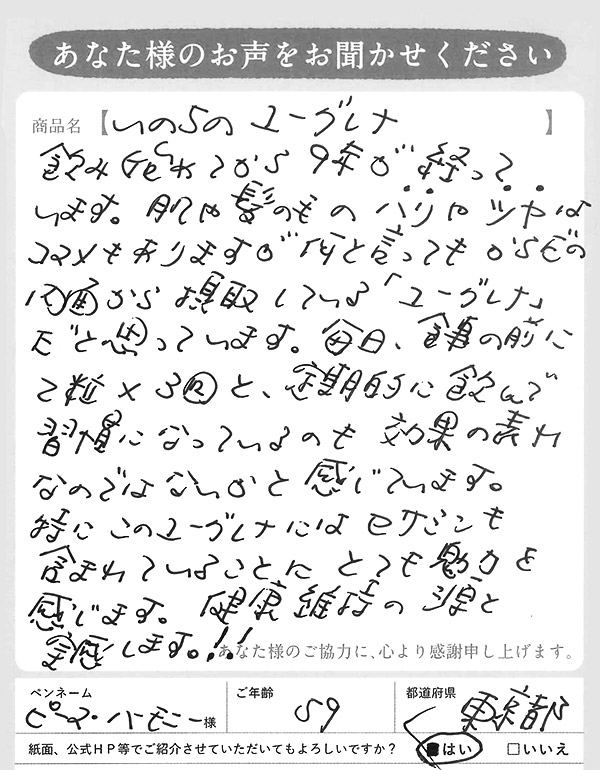 あなた様のお声をお聞かせください
商品名【いのちのユーグレナ】
飲み始れてから9年が経って
います。肌や髪のもの ハリや ツヤは
コスメもありますが何と言っても からだの
内面から 摂取している「ユーグレナ」
だと思っています。毎日、食事の前に
2粒×3回と、定期的に飲んで
習慣になっているのも 効果の表れ
なのではないかと感じています。
特にこのユーグレナにはセサミンも
含まれていることに とても魅力を
感じます。健康維持の源と
実感します。!!
あなた様のご協力に、心より感謝申し上げます。
ペンネーム ご年齢 都道府県
ピース・ハーモニー様 59 東京都
紙面、公式HP等でご紹介させていただいてもよろしいですか? ■はい □いいえ